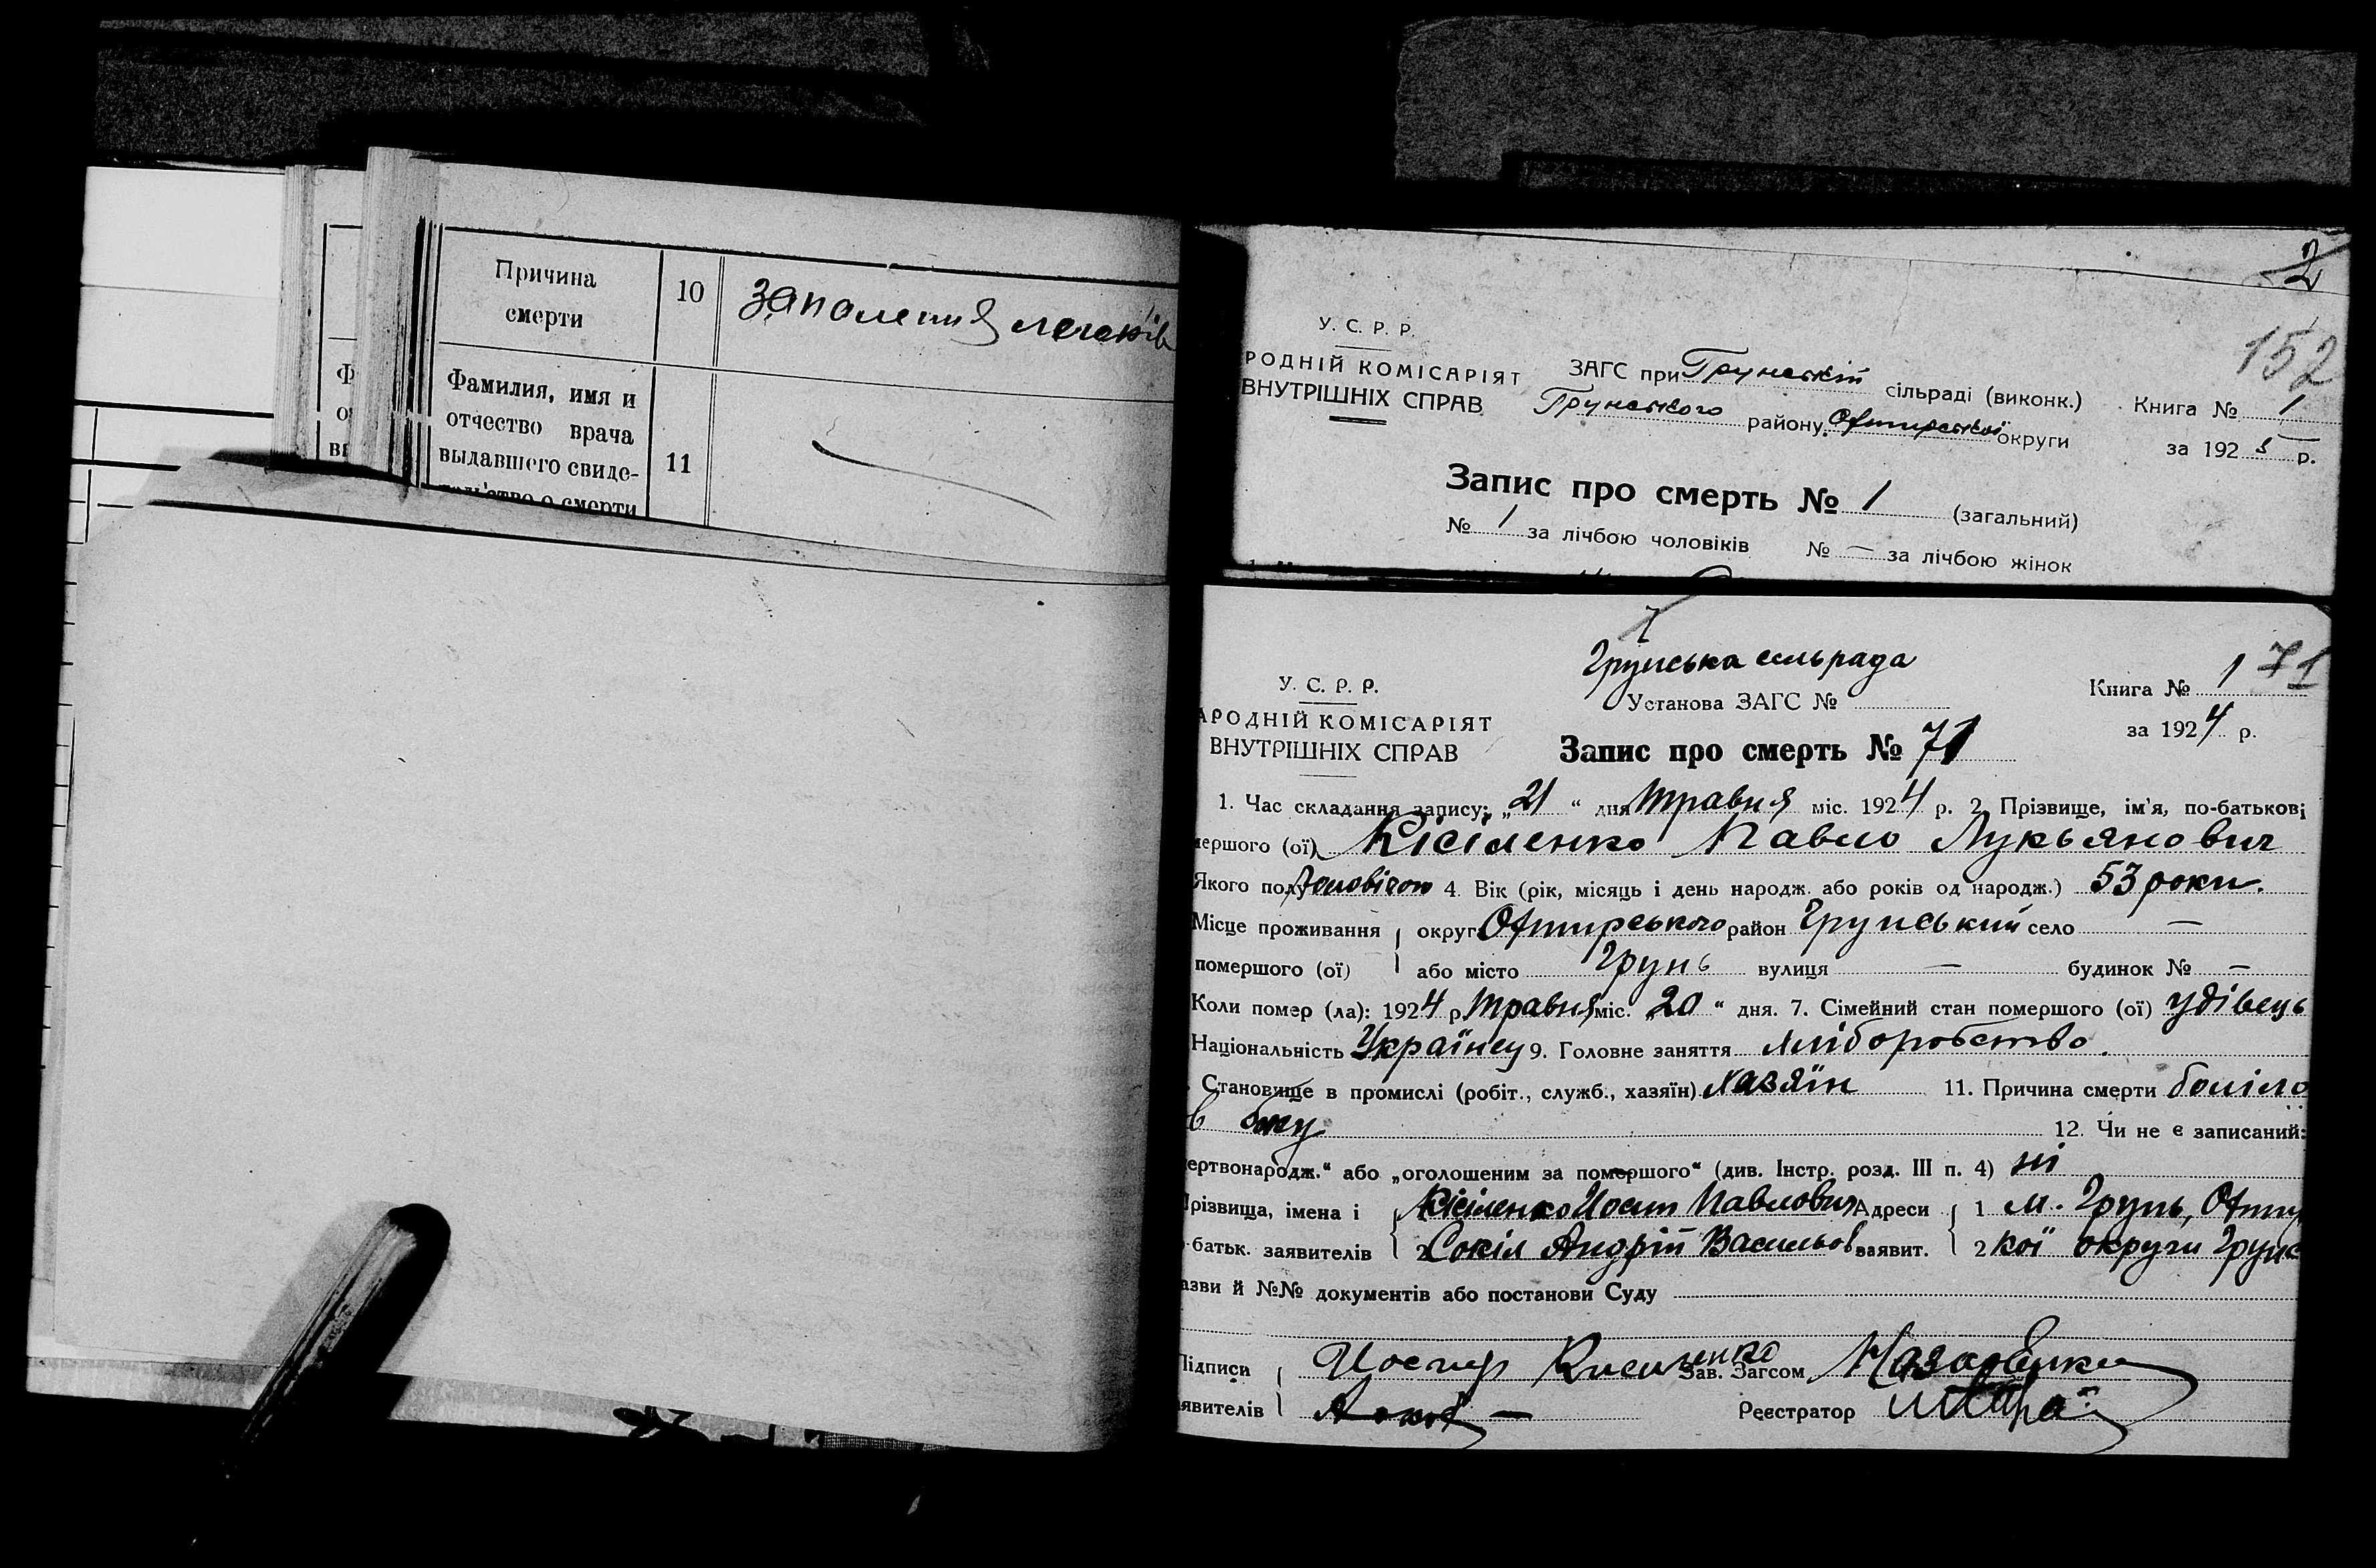 Причина
смерти
10
запаления легенів
Фамилия, имя и
отчество врача
выдавшего свиде-
11
о смерти
2
152
У. С. Р. Р.
РОДНІЙ КОМІСАРІЯТ
ВНУТРІШНІХ СПРАВ
ЗАГС при Грунський сільраді (виконк.)
Грунського району Охтирської округи
Книга № 1
за 1925 р.
Запис про смерть № 1 (загальний)
№ 1 за лічбою чоловіків № — за лічбою жінок
Грунська сільрада
У. С. Р. Р.
Установа ЗАГС №
Книга № 1 71
АРОДНІЙ КОМІСАРІЯТ
ВНУТРІШНІХ СПРАВ
за 1924 р.
Запис про смерть № 71
1. Час складання запису: „21“ дня травня міс. 1924 р. 2. Прізвище, ім'я, по-батькові
мершого (ої) Кісіленко Павло Лукьянович
Якого полу чоловічого 4. Вік (рік, місяць і день народж. або років од народж.) 53 роки.
Місце проживання округ Охтирського район Грунський село —
помершого (ої) або місто Грунь вулиця — будинок № —
Коли помер (ла): 1924 р. травня міс. „20“ дня. 7. Сімейний стан помершого (ої) удівець
Національність Українец 9. Головне заняття хліборобство.
Становище в промислі (робіт., служб., хазяїн) хазяїн 11. Причина смерти боліло
в боку 12. Чи не є записаний:
ертвонародж.“ або „оголошеним за померпого“ (див. Інстр. розд. III п. 4) ні
Прізвища, імена і Кісіленко Йосип Павлович Адреси 1 м. Грунь, Охтир
батьк. заявителів 2 Сокіл Андрій Васильов заявит. 2 кої округи Грунс
азви й №№ документів або постанови Суду
Підписи Иосип Кисиленко Зав. Загсом Назаренко
явителів Реєстратор